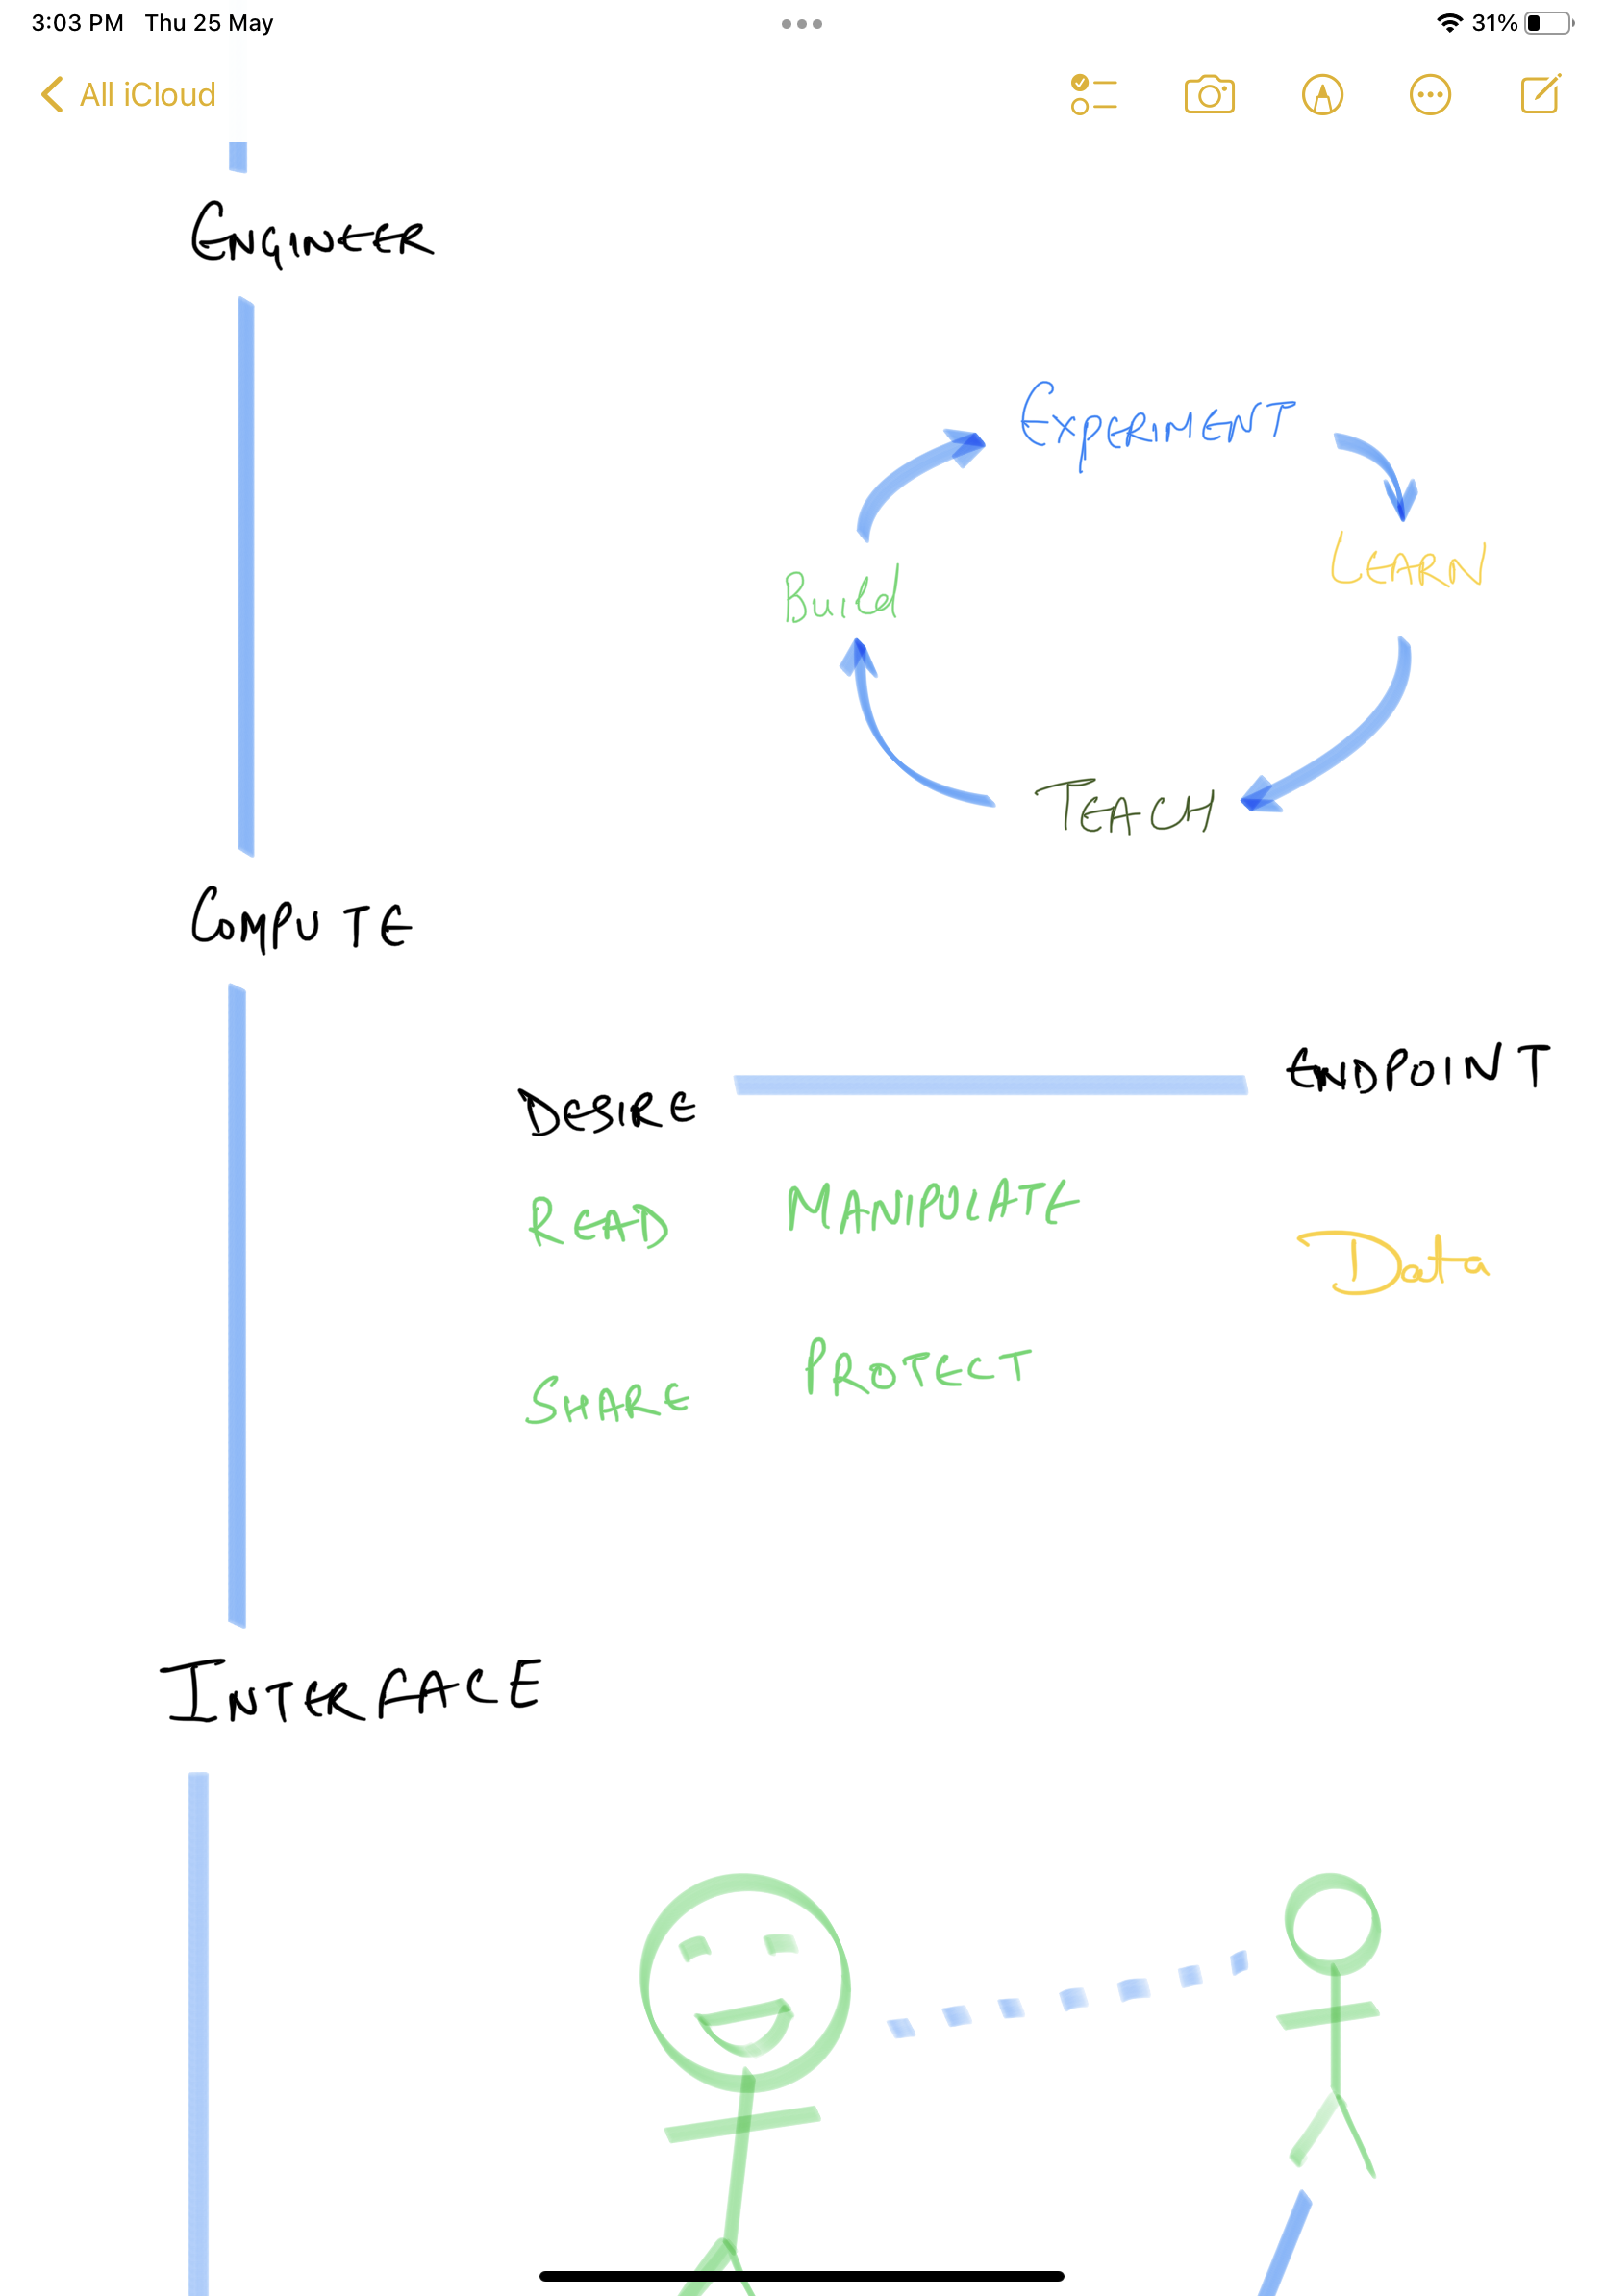 3:03 PM Thu 25 May
31%
All iCloud
ENGINEER
EXPERIMENT
LEARN
Build
TEACH
COMPUTE
DESIRE ENDPOINT
READ MANIPULATE
Data
SHARE PROTECT
INTERFACE